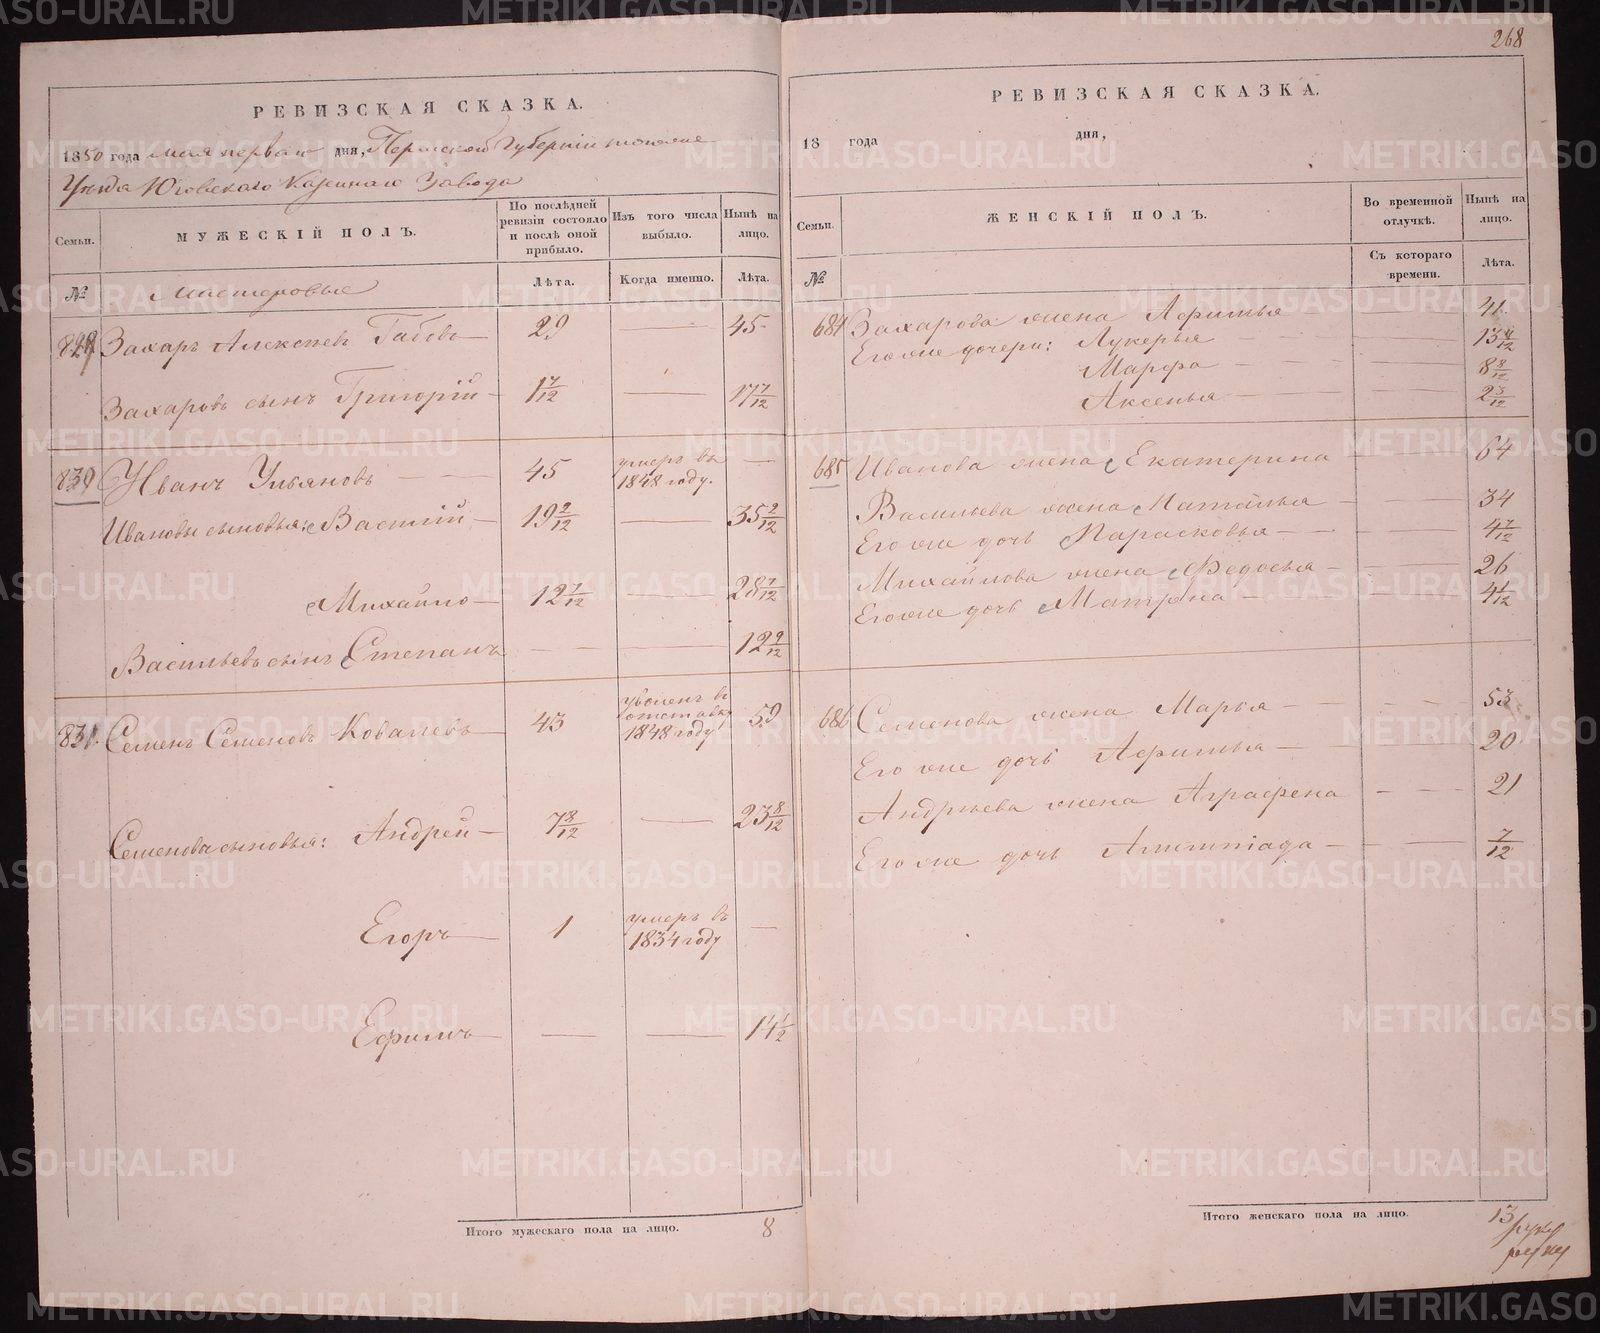 268
РЕВИЗСКАЯ СКАЗКА.
1850 года мая первая дня, Пермской Губерніи тогоже
Уезда Юговскаго Казеннаго Завода
Семьи.
МУЖЕСКІЙ ПОЛЪ.
По послѣдней ревизіи состояло и послѣ оной прибыло.
Изъ того числа выбыло.
Нынѣ на лицо.
№
Мастеровые
Лѣта.
Когда именно.
Лѣта.
829 Захаръ Алексѣевъ Габовъ 29 — 45
Захаровъ сынъ Григорій 1 7/12 — 17 7/12
830 Иванъ Ульяновъ 45 умеръ въ 1848 году. —
Ивановы сыновья: Василій 19 2/12 — 35 2/12
Михайло 12 7/12 — 28 7/12
Васильевъ сынъ Степанъ — — 12 2/12
831. Семенъ Семеновъ Ковалевъ 43 уволенъ въ отставку 1848 году 59
Семенова сыновья: Андрей 7 8/12 — 23 8/12
Егоръ 1 умеръ въ 1834 году —
Ефимъ — — 14 1/2
Итого мужескаго пола на лицо. 8
РЕВИЗСКАЯ СКАЗКА.
18 года дня,
Семьи.
ЖЕНСКІЙ ПОЛЪ.
Во временной отлучкѣ.
Нынѣ на лицо.
№
Съ котораго времени.
Лѣта.
684 Захарова жена Афимья 41
Его же дочери: Лукерья — 13 4/12
Марфа — 8 8/12
Аксенья — 2 3/12
685 Иванова жена Екатерина 64
Васильева жена Наталья — 34
Его же дочь Парасковья — 4 7/12
Михайлова жена Федосья — 26
Его же дочь Матрена — 4 1/12
686 Семенова жена Марья — 53
Его же дочь Афимья — 20
Андрѣева жена Аграфена — 21
Его же дочь Алимпіада — 7/12
Итого женскаго пола на лицо. 13
METRIKI.GASO-URAL.RU